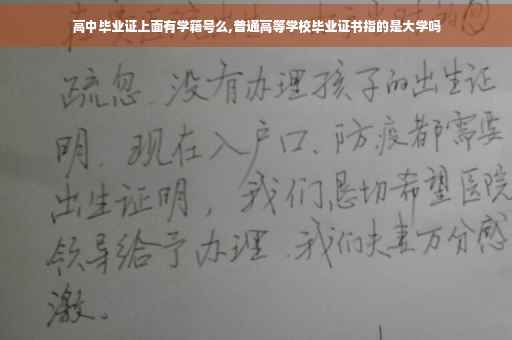 高中毕业证上面有学籍号么,普通高等学校毕业证书指的是大学吗
疏忽、没有办理孩子的出生证
明。现在入户口、防疫都需要
出生证明，我们恳切希望医院
领导给予办理、我们夫妻万分感
激。